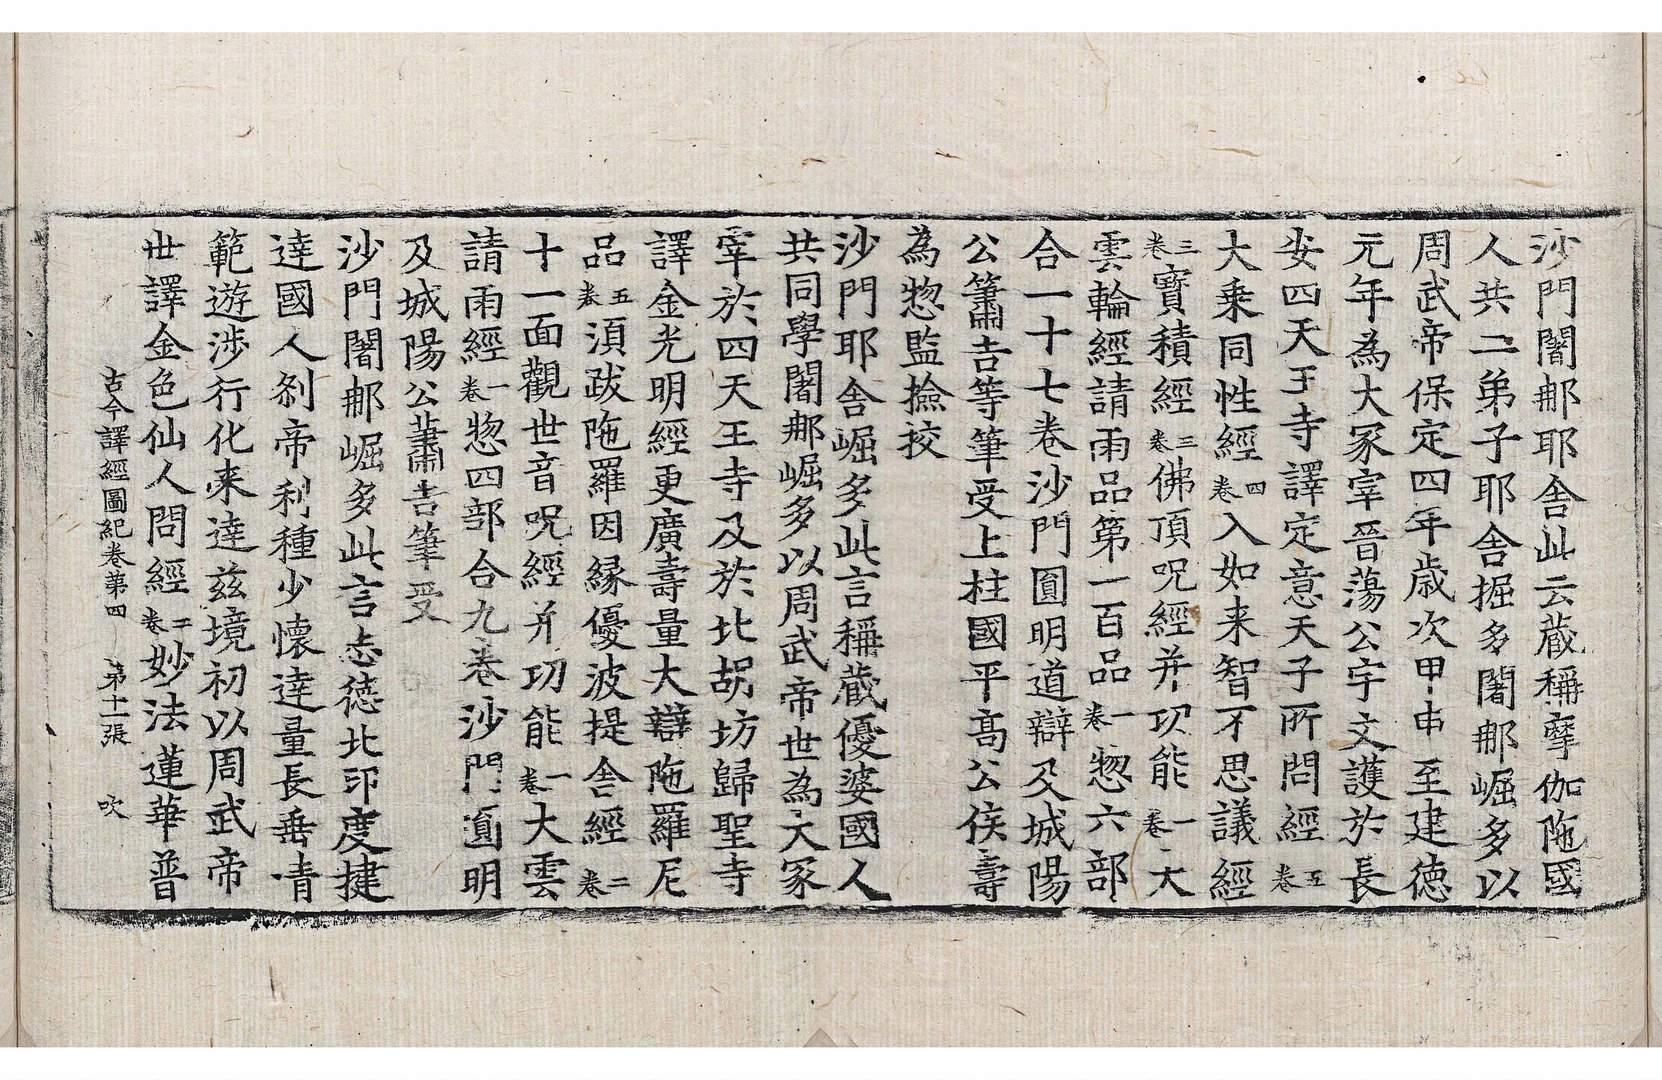 沙門闍那耶舍此云蔵稱摩伽陁國
人共二弟子耶舍掘多闍那崛多以
周武帝保定四年歳次甲申至建德
元年為大冢宰晉蕩公宇文護於長
安四天王寺譯定意天子所問經五卷
大乗同性經四卷入如来智不思議經
三卷寶積經三卷佛頂呪經并功能一卷大
雲輪經請雨品第一百品一卷惣六部
合一十七卷沙門圓明道辯及城陽
公簫吉等筆受上柱國平髙公侯壽
為惣監撿挍
沙門耶舍崛多此言稱蔵優婆國人
共同學闍那崛多以周武帝世為大冢
宰於四天王寺及於北胡坊歸聖寺
譯金光明經更廣壽量大辯陁羅尼
品五卷湏跋陁羅因縁優波提舍經二卷
十一面觀世音呪經并功能一卷大雲
請雨經一卷惣四部合九卷沙門圎明
及城陽公蕭吉筆受
沙門闍那崛多此言志德北印度揵
達國人刹帝利種少懐達量長垂清
範遊涉行化来達茲境初以周武帝
世譯金色仙人問經二卷妙法蓮華普
古今譯經圖紀卷第四 第十一張 吹